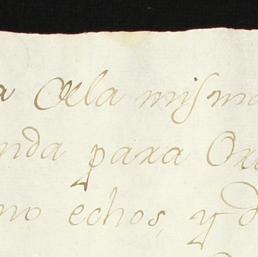 a dela misma
nda para Or
mo echos, y d